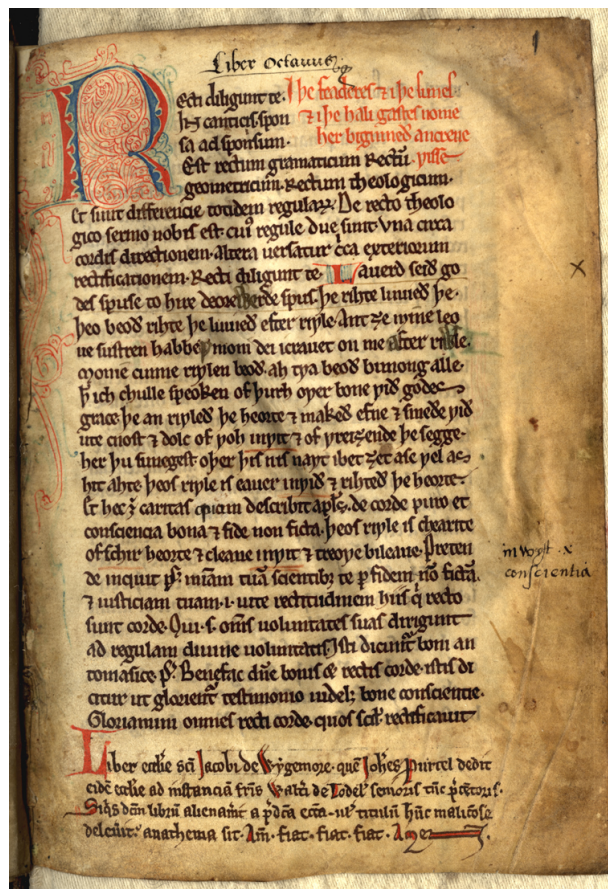 Liber Octauus
Recti diligunt te. I þe feaderes ⁊ i þe sunes
In canticis. spon ⁊ i þe hali gastes nome
sa ad sponsum. her biginneð ancrene
Est rectum gramaticum. Rectū ƿisse
geometricum. Rectum theologicum.
Et sunt differencie totidem regularū. De recto theolo
gico sermo nobis est. cuiꝰ regule due sunt. Vna circa
cordis directionem. Altera uersatur circa exteriorum
rectificationem. Recti diligunt te. Lauerd seið go
des spuse to hire deoreƿurðe spus. þe rihte luuieð þe.
þeo beoð rihte þe luuieð efter riƿle. Ant ȝe mine leo
ue sustren habbeð moni dei icrauet on me after riƿle.
Monie cunne riƿlen beoð. ah tƿa beoð bimong alle.
ꝥ ich chulle speoken of þurh oƿer bone ƿið godes
grace. þe an riƿleð þe heorte ⁊ makeð efne ⁊ smeðe ƿið
ute cnost ⁊ dolc of ƿoh inƿit ⁊ of ƿreiȝende þe segge.
her þu sunegest. oþer þis nis naƿt ibet ȝet ase ƿel as
hit ahte. þeos riƿle is eauer inƿið ⁊ rihteð þe heorte.
Et hec ē caritas quam describit apl̄s. de corde puro et
consciencia bona ⁊ fide non ficta. þeos riƿle is chearite
of schir heorte ⁊ cleane inƿit ⁊ treoƿe bileaue. Preten
de inquit p̄s. mīam tuā scientibꝫ te ꝑ fidem nō fictā.
⁊ iusticiam tuam .i. uite rectitudinem hiis q̇ recto
sunt corde. Qui .s. om̄s uoluntates suas dirigunt
ad regulam diuine uoluntatis. Isti dicunt᷑ boni an
tomasice. p̄s. Benefac dn̄e bonis ⁊ rectis corde. istis di
citur ut glorient᷑ testimonio uidelꝫ bone consciencie.
Gloriamini omnes recti corde. quos scil᷑ rectificauit
Liber eccl̄ie sc̄i Jacobi de Wygemore. quē Joh̄es Purcel dedit
eidē eccl̄ie ad instanciā fr̄is Walt̄i de Lodel᷑ senioris tūc p̄cētoris.
Siq̇s dc̄m librū alienau᷑it a p̄dc̄a eccl̄ia. uel᷑ titulū hūc maliciose
deleu᷑it. anathema sit. Am̄. fiat. fiat. fiat. Amen
inwyt. x
conscientia